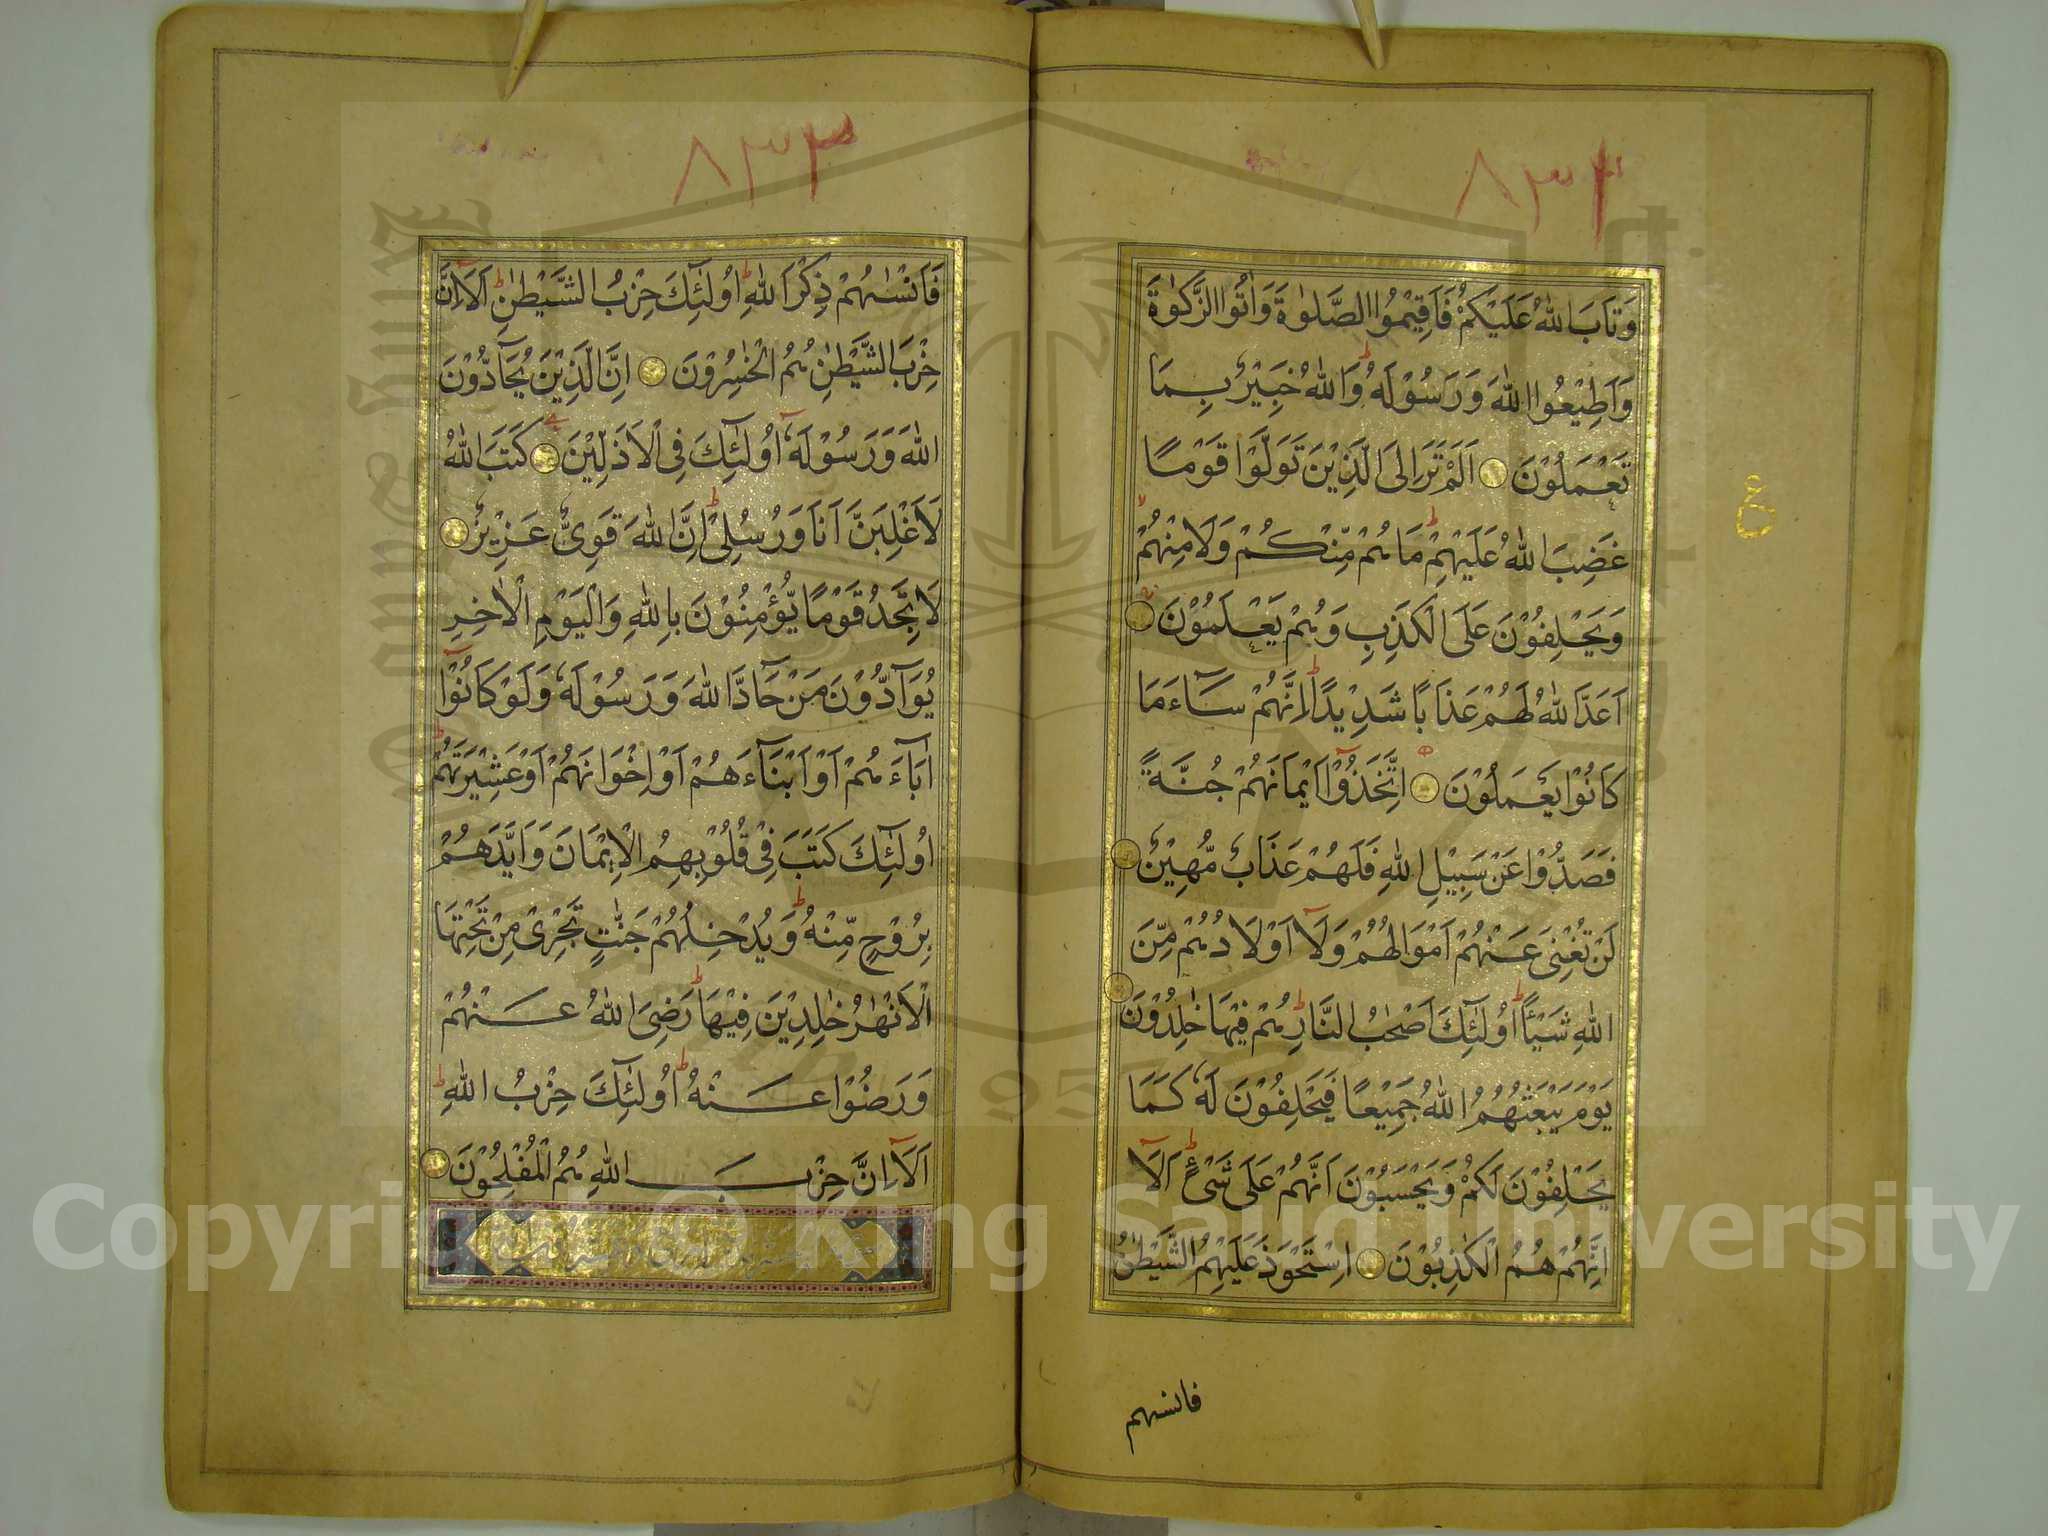 ٨٣٢
وَتَابَ اللّٰهُ عَلَيْكُمْ فَاَقِيْمُوا الصَّلٰوةَ وَاٰتُوا الزَّكٰوةَ
وَاَطِيْعُوا اللّٰهَ وَرَسُوْلَهٗ ؕ وَاللّٰهُ خَبِيْرٌ بِمَا
تَعْمَلُوْنَ اَلَمْ تَرَ اِلَى الَّذِيْنَ تَوَلَّوْا قَوْمًا
غَضِبَ اللّٰهُ عَلَيْهِمْ ؕ مَا هُمْ مِّنْكُمْ وَلَا مِنْهُمْ ۙ
وَيَحْلِفُوْنَ عَلَى الْكَذِبِ وَهُمْ يَعْلَمُوْنَ
اَعَدَّ اللّٰهُ لَهُمْ عَذَابًا شَدِيْدًا ؕ اِنَّهُمْ سَآءَ مَا
كَانُوْا يَعْمَلُوْنَ اِتَّخَذُوْٓا اَيْمَانَهُمْ جُنَّةً
فَصَدُّوْا عَنْ سَبِيْلِ اللّٰهِ فَلَهُمْ عَذَابٌ مُّهِيْنٌ
لَنْ تُغْنِيَ عَنْهُمْ اَمْوَالُهُمْ وَلَآ اَوْلَادُهُمْ مِّنَ
اللّٰهِ شَيْئًا ؕ اُولٰٓئِكَ اَصْحٰبُ النَّارِ ؕ هُمْ فِيْهَا خٰلِدُوْنَ
يَوْمَ يَبْعَثُهُمُ اللّٰهُ جَمِيْعًا فَيَحْلِفُوْنَ لَهٗ كَمَا
يَحْلِفُوْنَ لَكُمْ وَيَحْسَبُوْنَ اَنَّهُمْ عَلٰى شَيْءٍ ؕ اَلَآ
اِنَّهُمْ هُمُ الْكٰذِبُوْنَ اِسْتَحْوَذَ عَلَيْهِمُ الشَّيْطٰنُ
فانسهم
ع
٨٣٣
فَاَنْسٰىهُمْ ذِكْرَ اللّٰهِ ؕ اُولٰٓئِكَ حِزْبُ الشَّيْطٰنِ ؕ اَلَآ اِنَّ
حِزْبَ الشَّيْطٰنِ هُمُ الْخٰسِرُوْنَ اِنَّ الَّذِيْنَ يُحَآدُّوْنَ
اللّٰهَ وَرَسُوْلَهٗٓ اُولٰٓئِكَ فِي الْاَذَلِّيْنَ كَتَبَ اللّٰهُ
لَاَغْلِبَنَّ اَنَا وَرُسُلِيْ ؕ اِنَّ اللّٰهَ قَوِيٌّ عَزِيْزٌ
لَا تَجِدُ قَوْمًا يُّؤْمِنُوْنَ بِاللّٰهِ وَالْيَوْمِ الْاٰخِرِ
يُوَآدُّوْنَ مَنْ حَآدَّ اللّٰهَ وَرَسُوْلَهٗ وَلَوْ كَانُوْٓا
اٰبَآءَهُمْ اَوْ اَبْنَآءَهُمْ اَوْ اِخْوَانَهُمْ اَوْ عَشِيْرَتَهُمْ ؕ
اُولٰٓئِكَ كَتَبَ فِيْ قُلُوْبِهِمُ الْاِيْمَانَ وَاَيَّدَهُمْ
بِرُوْحٍ مِّنْهُ ؕ وَيُدْخِلُهُمْ جَنّٰتٍ تَجْرِيْ مِنْ تَحْتِهَا
الْاَنْهٰرُ خٰلِدِيْنَ فِيْهَا ؕ رَضِيَ اللّٰهُ عَنْهُمْ
وَرَضُوْا عَنْهُ ؕ اُولٰٓئِكَ حِزْبُ اللّٰهِ ؕ
اَلَآ اِنَّ حِزْبَ اللّٰهِ هُمُ الْمُفْلِحُوْنَ
Copyright © King Saud University